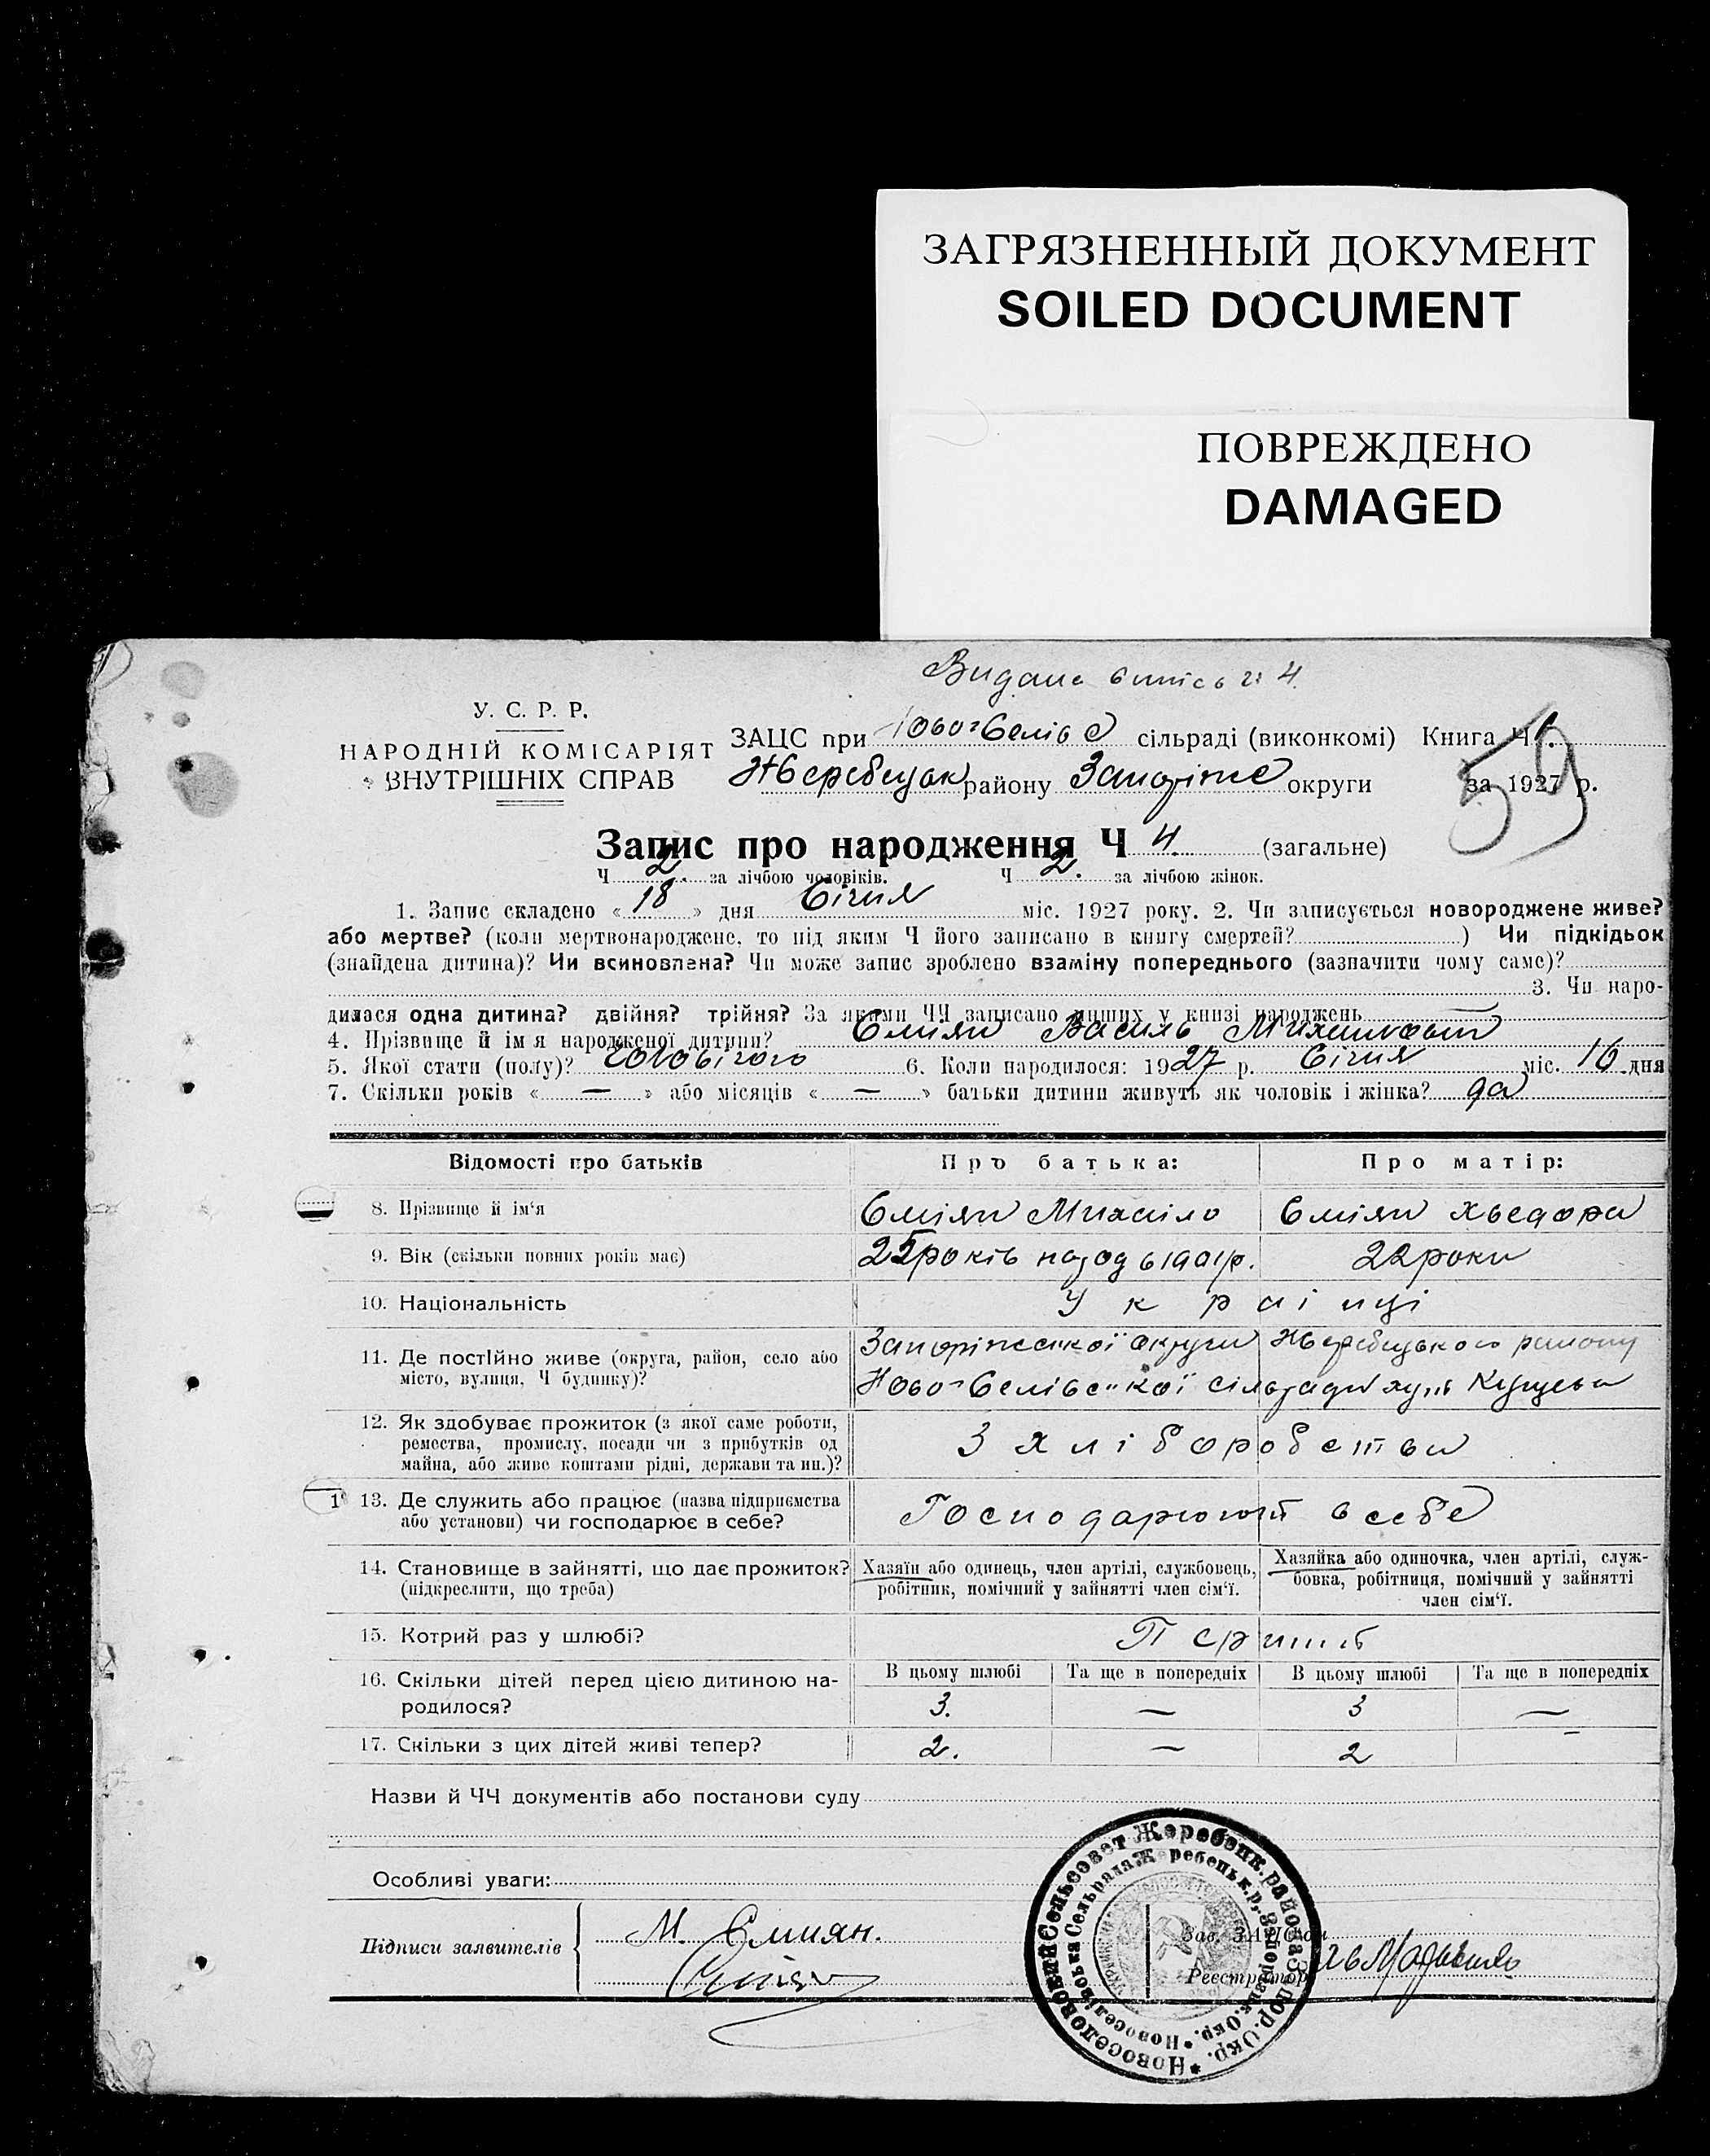 ЗАГРЯЗНЕННЫЙ ДОКУМЕНТ
SOILED DOCUMENT
ПОВРЕЖДЕНО
DAMAGED
Видана 4.
59
У. С. Р. Р.
НАРОДНІЙ КОМІСАРІЯТ
ВНУТРІШНІХ СПРАВ
ЗАЦС при сільраді (виконкомі) Книга Ч
району округи за 1927 р.
Запис про народження Ч 4. (загальне)
Ч 2. за лічбою чоловіків. Ч 2. за лічбою жінок.
1. Запис складено « 18 » дня Січня міс. 1927 року. 2. Чи записується новороджене живе?
або мертве? (коли мертвонароджене, то під яким Ч його записано в книгу смертей? ) Чи підкідьок
(знайдена дитина)? Чи всиновлена? Чи може запис зроблено взаміну попереднього (зазначити чому саме)?
3. Чи наро-
дилася одна дитина? двійня? трійня? За якими ЧЧ записано инших у книзі народжень —
4. Прізвище й ім я народженої дитини? Єміян Василь
5. Якої стати (полу)? чоловічого 6. Коли народилося: 1927 р. Січня міс. 16 дня
7. Скільки років « — » або місяців « — » батьки дитини живуть як чоловік і жінка? да
Відомості про батьків Про батька: Про матір:
8. Прізвище й ім'я Єміян Михаіло Єміян Хведора
9. Вік (скільки повних років має) 25 років 1901 р. 22 роки
10. Національність Украінці
11. Де постійно живе (округа, район, село або Запоріжської округи Жеребецького району
місто, вулиця, Ч будинку)? Ново-Селівської сільради
12. Як здобуває прожиток (з якої саме роботи,
ремества, промислу, посади чи з прибутків од З хліборобства
майна, або живе коштами рідні, держави та ин.)?
13. Де служить або працює (назва підприємства Господарюют в себе
або установи) чи господарює в себе?
14. Становище в зайнятті, що дає прожиток? Хазяїн або одинець, член артілі, службовець, Хазяйка або одиночка, член артілі, служ-
(підкреслити, що треба) робітник, помічний у зайнятті член сім'ї. бовка, робітниця, помічний у зайнятті
член сім'ї.
15. Котрий раз у шлюбі? Перший
16. Скільки дітей перед цією дитиною на- В цьому шлюбі Та ще в попередніх В цьому шлюбі Та ще в попередніх
родилося? 3. — 3 —
17. Скільки з цих дітей живі тепер? 2. — 2 —
Назви й ЧЧ документів або постанови суду
Особливі уваги:
Підписи заявителів М. Емиян. Зав. ЗАЦСом
Реєстратор
Новоселовский Сельсовет Жеребецк. района Запор. Окр.
Новоселівська Сельрада Жеребецьк. р. Запорізьк. Окр.